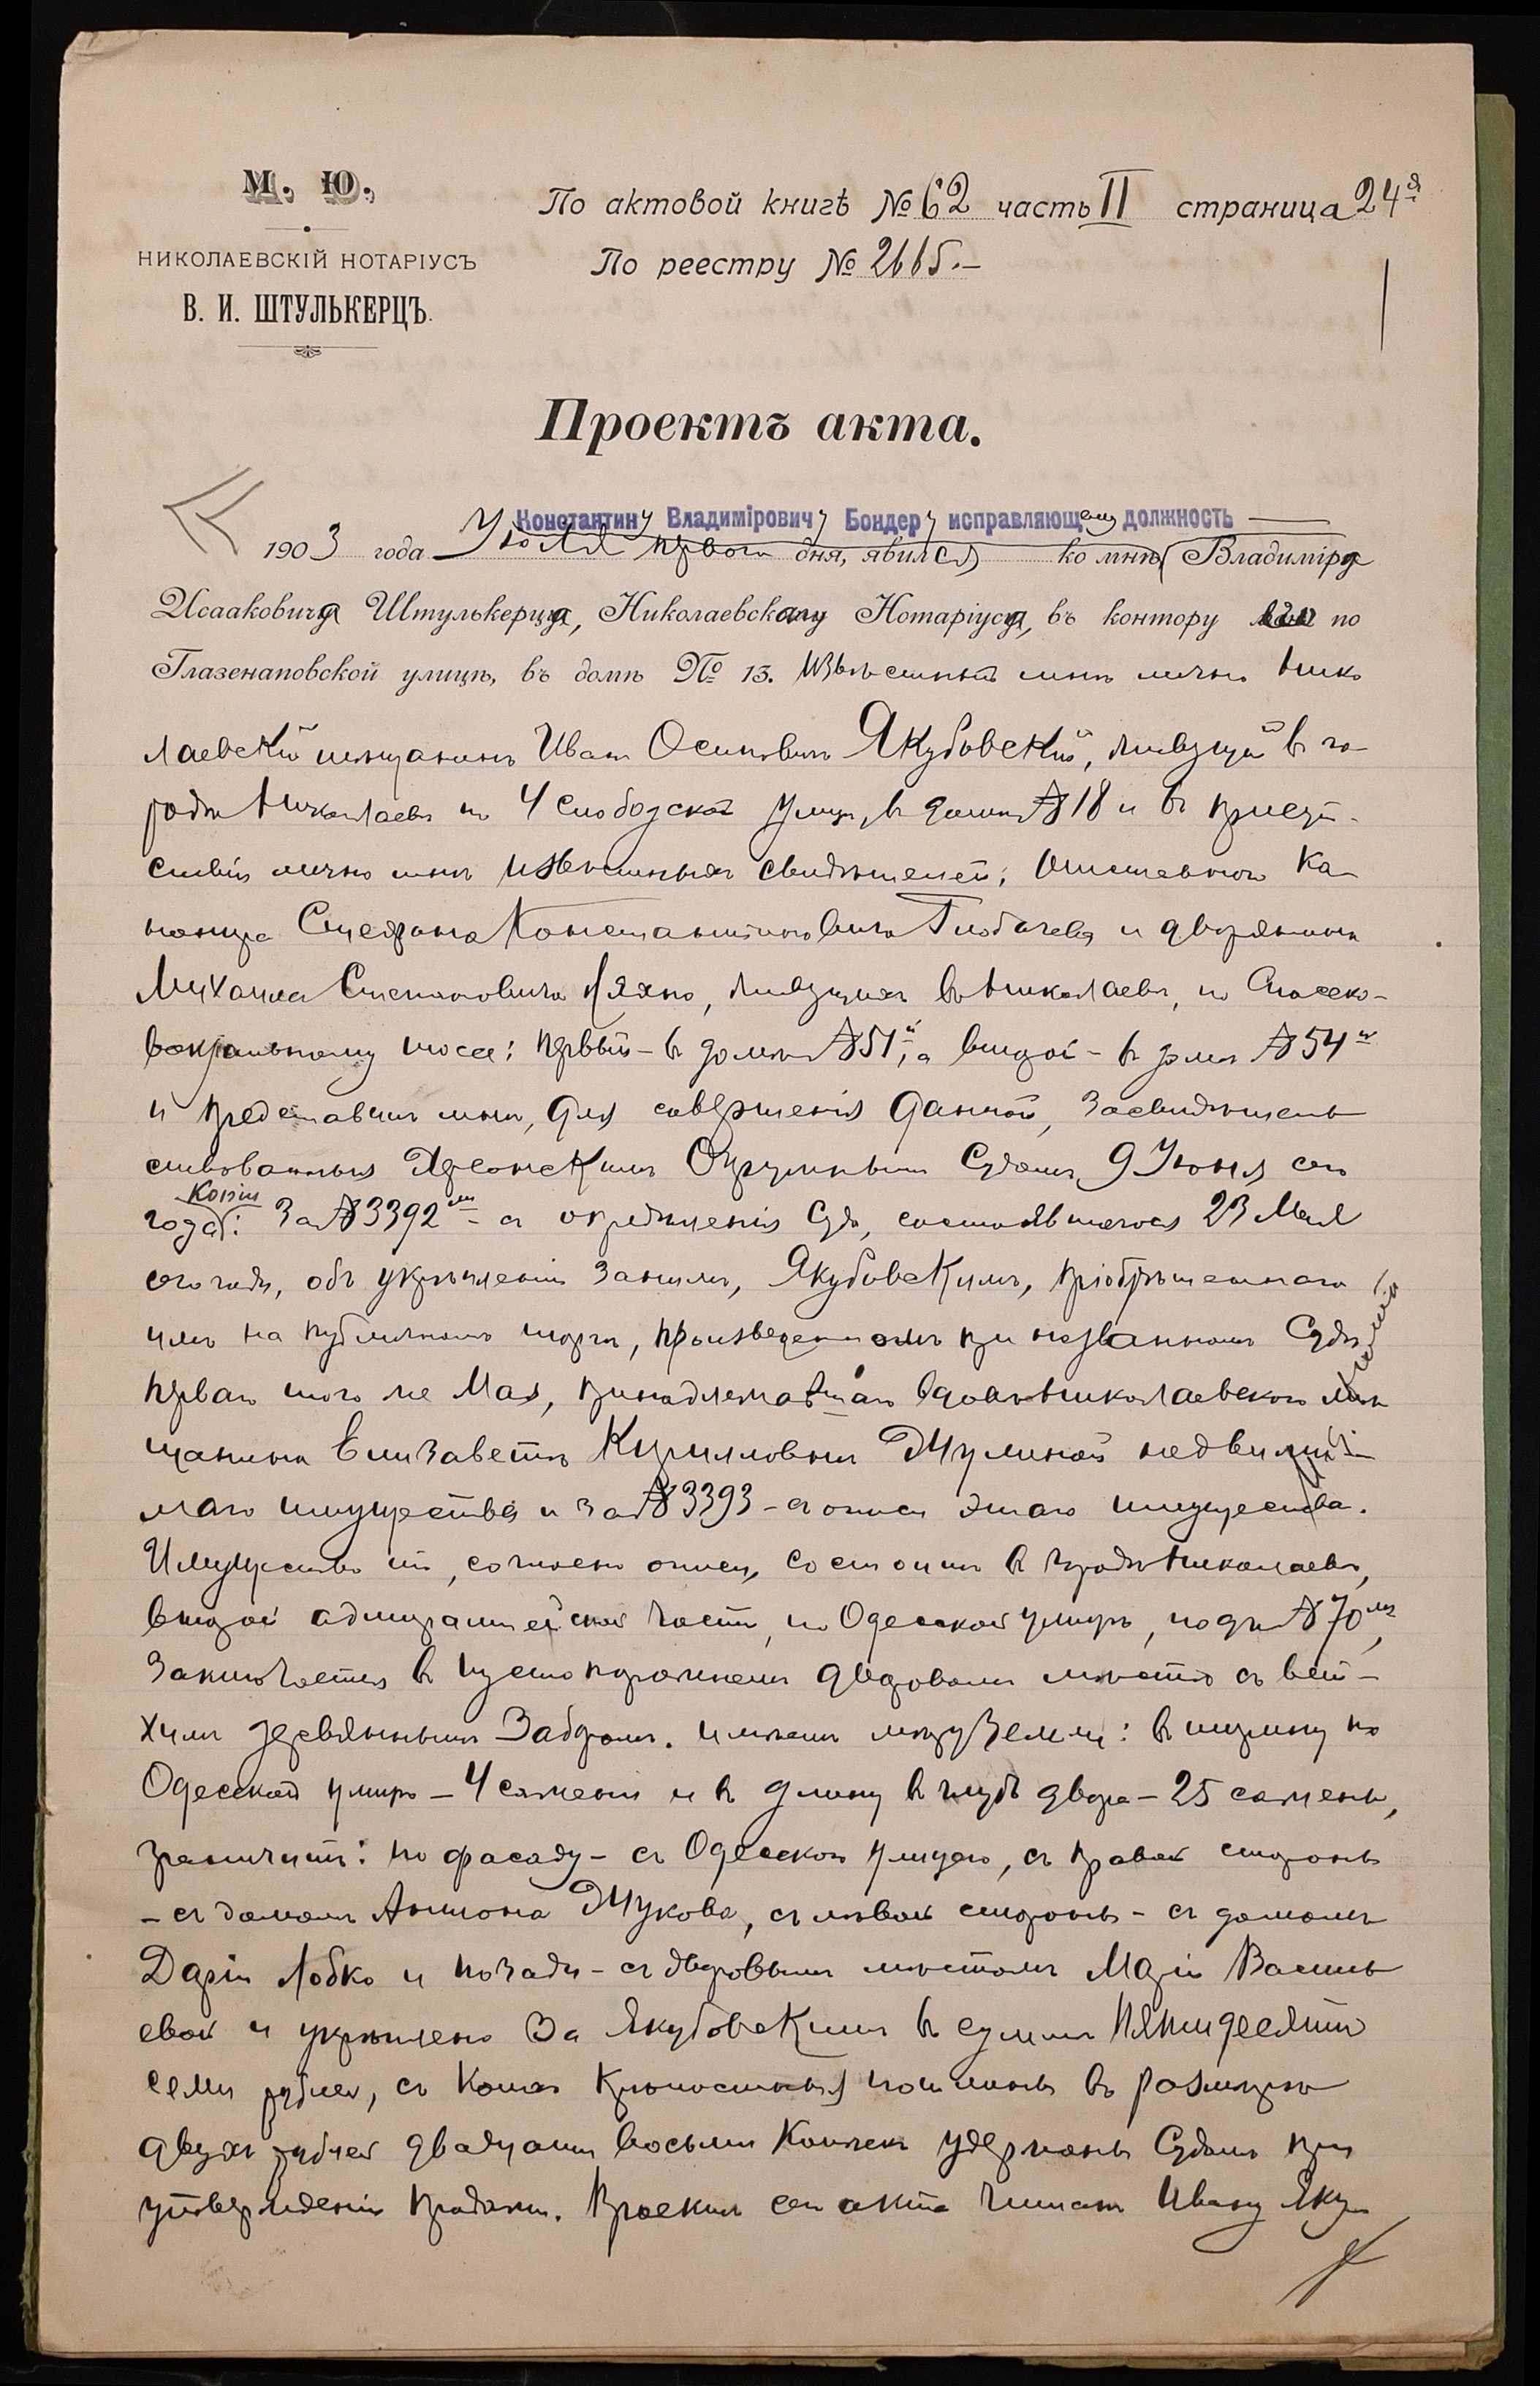 М. Ю.
НИКОЛАЕВСКІЙ НОТАРІУСЪ
В. И. ШТУЛЬКЕРЦЪ.
По актовой книгѣ № 62 часть II страница 24я
По реестру № 2665.—
Проектъ акта.
Константину Владиміровичу Бондеру исправляющему должность
1903 года Іюля перваго дня, явился ко мнѣ, Владиміра
Исааковича Штулькерца, Николаевскаго Нотаріуса, въ контору его по
Глазенаповской улицѣ, въ домѣ № 13. извѣстный мнѣ лично Нико
лаевскій мѣщанинъ Иванъ Осиповичъ Якубовскій, живущій въ го-
родѣ Николаевѣ по 4 Слободской улицѣ, въ домѣ №18 и въ присут-
ствіи лично мнѣ извѣстныхъ свидѣтелей: отставного ка-
нонира Стефана Константиновича Глобачева и дворянина
Михаила Степановича Ляхно, живущихъ въ Николаевѣ, по Спасско-
вокзальному шоссе: первый - въ домѣ №51й, а второй - въ домѣ №54й
и представилъ мнѣ, для совершенія данной, засвидѣтель
ствованныя Херсонскимъ Окружнымъ Судомъ 9 Іюня сего
года копіи: за №3392мъ - съ опредѣленія Суда, состоявшагося 23 Мая
сего года, объ укрѣпленіи за нимъ, Якубовскимъ, пріобрѣтеннаго
имъ на публичномъ торгѣ, произведенномъ при названномъ Судѣ
перваго того же Мая, принадлежавшаго вдовѣ Николаевскаго мѣ
щанина Елизаветѣ Кирилловнѣ Жулиной недвижи-
маго имущества и за №3393 - съ описи этого имущества.
Имущество это, согласно описи, состоитъ въ городѣ Николаевѣ,
второй адмиралтейской части, по Одесской улицѣ, подъ №70мъ,
заключается въ пустопорожнемъ дворовомъ мѣстѣ съ вет-
химъ деревяннымъ заборомъ. имѣетъ мѣру земли: въ ширину по
Одесской улицѣ - 4 сажени и въ длину въ глубь двора - 25 сажень,
граничитъ: по фасаду - съ Одесской улицею, съ правой стороны
- съ домомъ Антона Жукова, съ лѣвой стороны - съ домомъ
Даріи Лобко и позади - съ дворовымъ мѣстомъ Маріи Василь
евой и укрѣплено за Якубовскимъ въ суммѣ пятидесяти
семи рублей, съ коихъ крѣпостныя пошлины въ размѣрѣ
двухъ рублей двадцати восьми копѣекъ удержаны Судомъ при
утвержденіи продажи. Проектъ сей акта читанъ Ивану Яку-